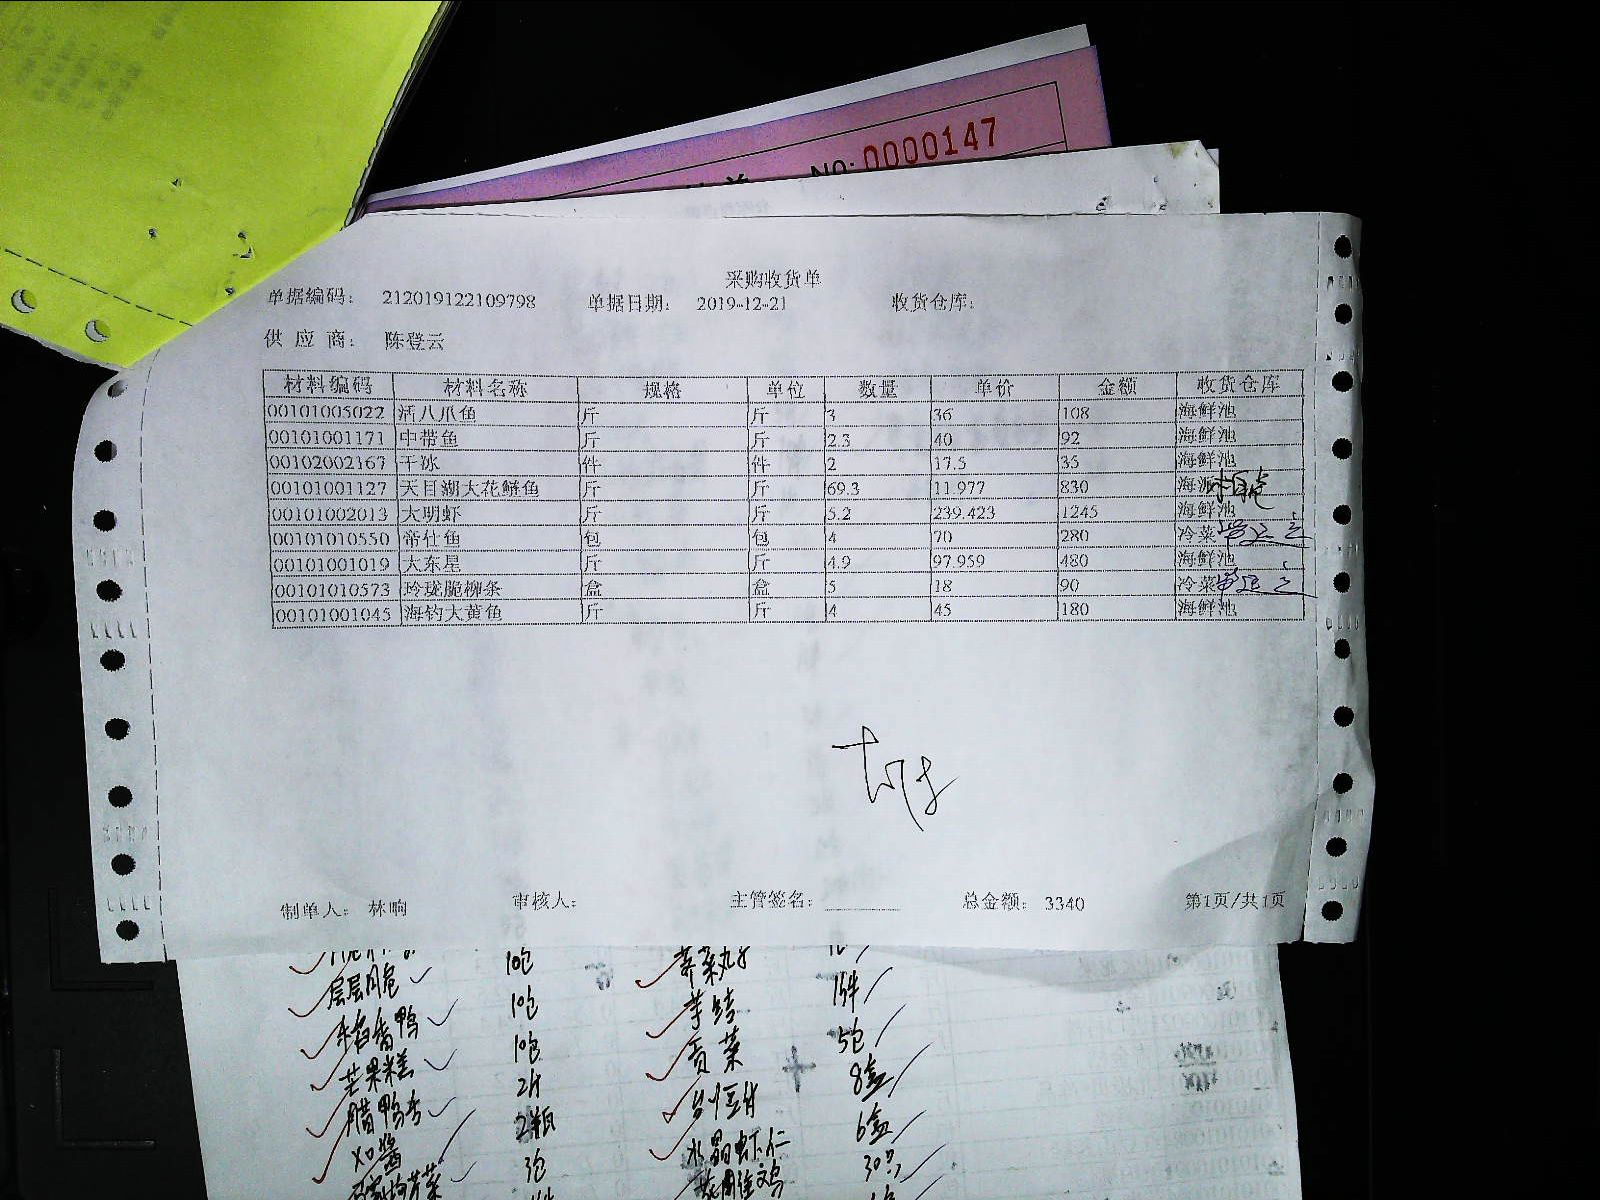 NO: 0000147
采购收货单
单据编码： 212019122109798 单据日期： 2019-12-21 收货仓库：
供 应 商： 陈登云
材料编码 材料名称 规格 单位 数量 单价 金额 收货仓库
00101005022 活八爪鱼 斤 斤 3 36 108 海鲜池
00101001171 中带鱼 斤 斤 2.3 40 92 海鲜池
00102002167 干冰 件 件 2 17.5 35 海鲜池
00101001127 天目湖大花鲢鱼 斤 斤 69.3 11.977 830 海
00101002013 大明虾 斤 斤 5.2 239.423 1245 海鲜池
00101010550 希仕鱼 包 包 4 70 280 冷菜
00101001019 大东星 斤 斤 4.9 97.959 480 海鲜池
00101010573 玲珑脆柳条 盒 盒 5 18 90 冷菜
00101001045 海钓大黄鱼 斤 斤 4 45 180 海鲜池
制单人： 林响 审核人： 主管签名： 总金额： 3340 第1页/共1页
10包 荠菜丸子
层层脆 10包 芋结
香鸭 10包 贡菜 5包
芒果糕 8盒
腊鸭 2瓶 6盒
XO酱 3包 水晶虾仁 30只